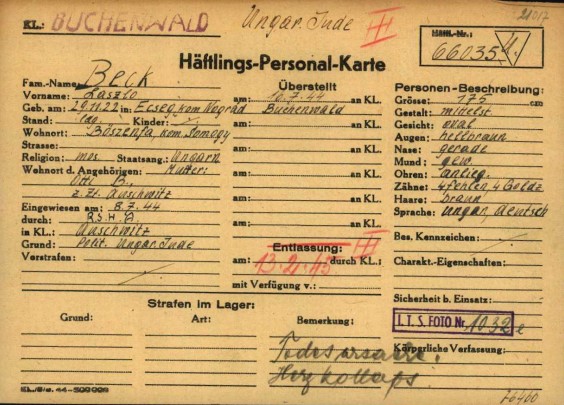 KL.: BUCHENWALD
Ungar. Jude
III
21017
Häftl.-Nr.:
66035
U.
Häftlings-Personal-Karte
Fam.-Name: Beck
Vorname: Laszlo
Geb. am: 29.11.22 in: Ecseg, kom. Nograd
Stand: led. Kinder: /
Wohnort: Böszenfa, kom. Somogy
Strasse:
Religion: mos. Staatsang.: Ungarn
Wohnort d. Angehörigen: Mutter:
Otti B.,
z. Zt. Auschwitz
Eingewiesen am: 8.7.44
durch: R.S.H.A.
in KL.: Auschwitz
Grund: Polit. Ungar. Jude
Vorstrafen:
Überstellt
am: 10.7.44 an KL.
Buchenwald
am: an KL.
am: an KL.
am: an KL.
am: an KL.
am: an KL.
Entlassung:
III
am: 13.2.45 durch KL.:
mit Verfügung v.:
Personen-Beschreibung:
Grösse: 175 cm
Gestalt: mittelst
Gesicht: oval
Augen: hellbraun
Nase: gerade
Mund: gew.
Ohren: anlieg.
Zähne: 4 fehlen, 4 Gold
Haare: braun
Sprache: ungar., deutsch
Bes. Kennzeichen:
Charakt.-Eigenschaften:
Sicherheit b. Einsatz:
I.T.S. FOTO Nr. 1032
Körperliche Verfassung:
Strafen im Lager:
Grund: Art: Bemerkung:
Todesursache:
Herzkollaps
26400